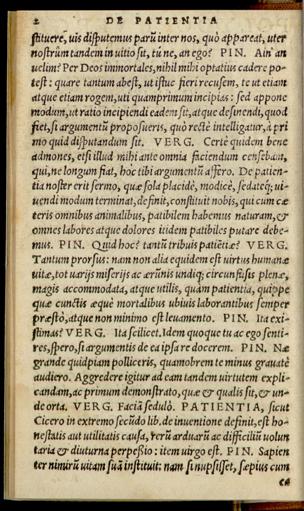 2 DE PATIENTIA
stituere, uis disputemus parũ inter nos, quò appareat, uter
nostrũm tandem in uitio sit, tú ne, an ego? PIN. Ain' an
uelim? Per Deos immortales, nihil mihi optatius cadere po-
test: quare tantum abest, ut istuc fieri recusem, te ut etiam
atque etiam rogem, uti quamprimum incipias: sed appone
modum, ut ratio incipiendi eadem sit, atque desinendi, quod
fiet, si argumentũ proposueris, quò rectè intelligatur, à pri
mo quid disputandum sit. VERG. Certè quidem bene
admones, etsi illud mihi ante omnia faciendum censebant,
qui, ne longum fiat, hoc tibi argumentũ assero. De patien-
tia noster erit sermo, quæ sola placidè, modicè, sedateq́; ui-
uendi modum terminat, definit, constituit nobis, qui cum cæ
teris omnibus animalibus, patibilem habemus naturam, &
omnes labores atque dolores itidem patibiles putare debe-
mus. PIN. Quid hoc? tantũ tribuis patiẽtiæ? VERG.
Tantum prorsus: nam non alia equidem est uirtus humanæ
uitæ, tot uarijs miserijs ac ærũnis undiq; circunfusis plenæ,
magis accommodata, atque utilis, quàm patientia, quippe
quæ cunctis æque mortalibus ubiuis laborantibus semper
præstò, atque non minimo est leuamento. PIN. Ita exi-
stimas? VERG. Ita scilicet. Idem quoque tu ac ego senti-
res, spero, si argumentis de ea ipsa re docerem. PIN. Næ
grande quidpiam polliceris, quamobrem te minus grauatè
audiero. Aggredere igitur ad eam tandem uirtutem expli-
candam, ac primum demonstrato, quæ & qualis sit, & un-
de orta. VERG. Faciã sedulò. PATIENTIA, sicut
Cicero in extremo secũdo lib. de inuentione definit, est ho-
nestatis aut utilitatis causa, rerũ arduarũ ac difficiliũ uolun
taria & diuturna perpessio: item uirgo est. PIN. Sapien
ter nimirũ uitam suã instituit: nam si nupsisset, sæpius cum